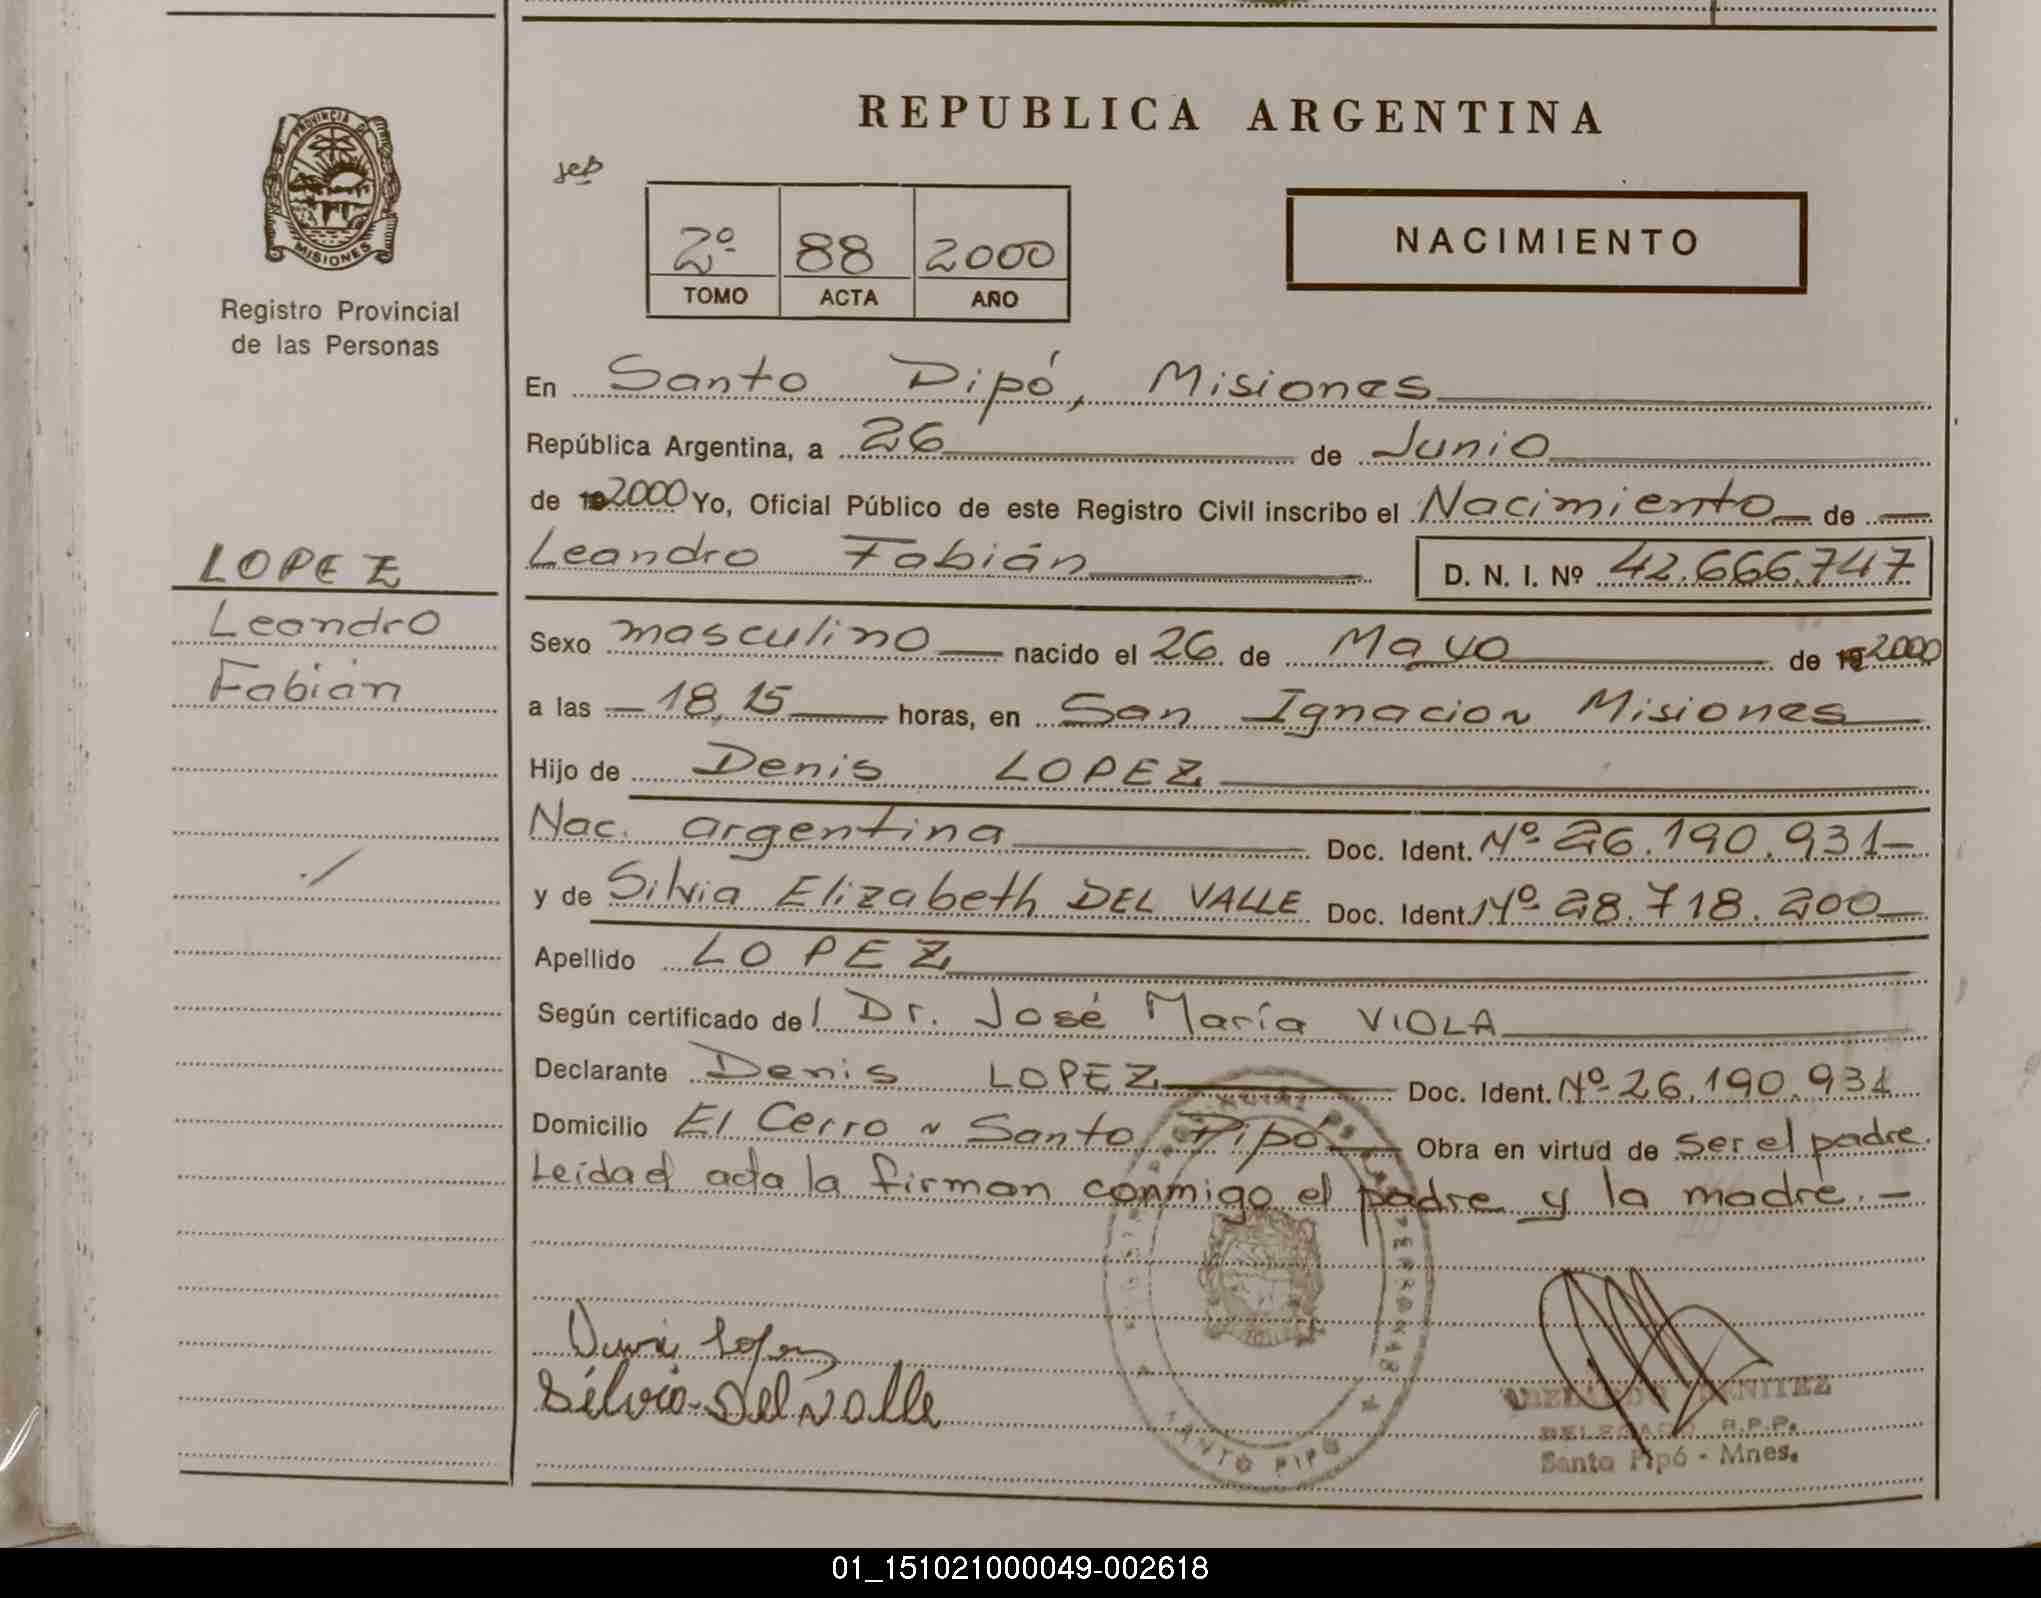 REPUBLICA ARGENTINA
PROVINCIA DE
MISIONES
Registro Provincial
de las Personas
2º 88 2000
TOMO ACTA AÑO
NACIMIENTO
LOPEZ
Leandro
Fabián
En Santo Pipó, Misiones
República Argentina, a 26 de Junio
de 19 2000 Yo, Oficial Público de este Registro Civil inscribo el Nacimiento de
Leandro Fabián D. N. I. Nº 42.666.747
Sexo masculino nacido el 26 de Mayo de 19 2000
a las 18,15 horas, en San Ignacio ~ Misiones
Hijo de Denis LOPEZ
Nac. argentina Doc. Ident. Nº 26.190.931-
y de Silvia Elizabeth DEL VALLE Doc. Ident. Nº 28.718.200
Apellido LOPEZ
Según certificado del Dr. José María VIOLA
Declarante Denis LOPEZ Doc. Ident. Nº 26.190.931
Domicilio El Cerro ~ Santo Pipó Obra en virtud de ser el padre.
Leídad acta la firman conmigo el padre y la madre. -
Silvia Del Valle
SANTO PIPÓ
BENITEZ
DELEGADO R.P.P.
Santo Pipó - Mnes.
01_151021000049-002618